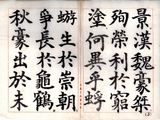 景漢魏豪桀
殉榮利於窮
塗何異乎蜉
蝣生於崇朝
爭長於龜鶴
秋豪出於未